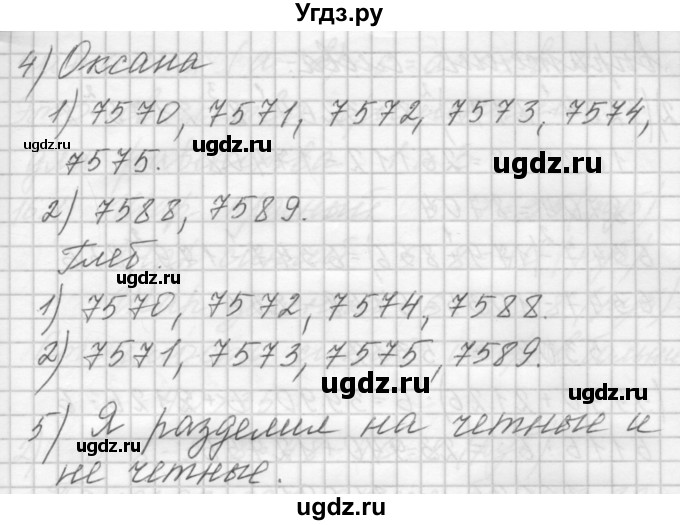 Угдз.ру
4) Оксана
1) 7570, 7571, 7572, 7573, 7574,
ugdz.ru ugdz.ru
7575.
ugdz.ru
2) 7588, 7589.
Глеб.
ugdz.ru
1) 7570, 7572, 7574, 7588.
2) 7571, 7573, 7575, 7589.
ugdz.ru ugdz.ru
5) Я разделил на четные и
ugdz.ru
не четные.
ugdz.ru